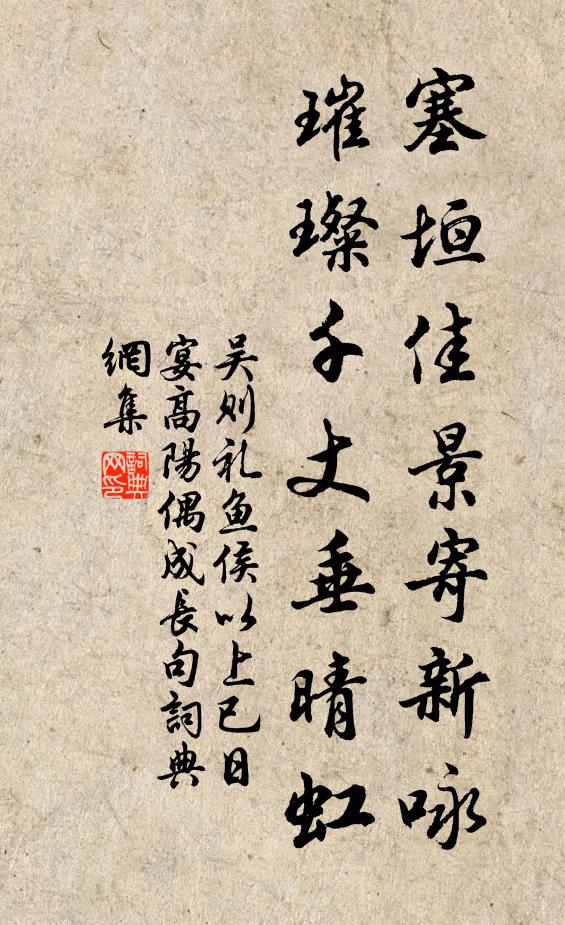 塞垣佳景寄新咏
璀璨千丈垂晴虹
吴则礼鱼侯以上巳日
宴高陽偶成長句詞典
網集
詞典
网印